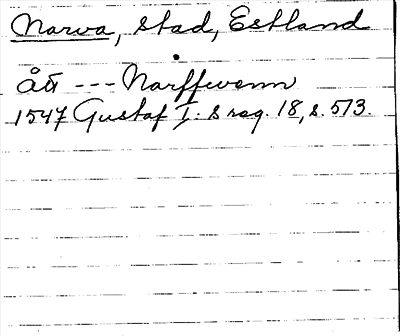 Narva, stad, Estland
åt --- Narffwenn
1547 Gustaf I: s reg. 18, s. 573.